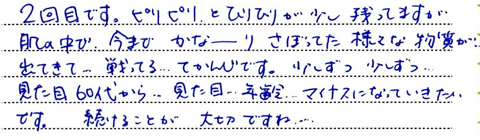 2回目です。ピリピリ。とびりびりが少し残ってますが
肌の中で、今まで かなーり さぼってた 様々な物質が…
出てきて… 戦ってる… てかんじです。少しずつ 少しずつ…
見た目60代から… 見た目… 年齢… マイナスになっていきたい
です。 続けることが 大切ですね…